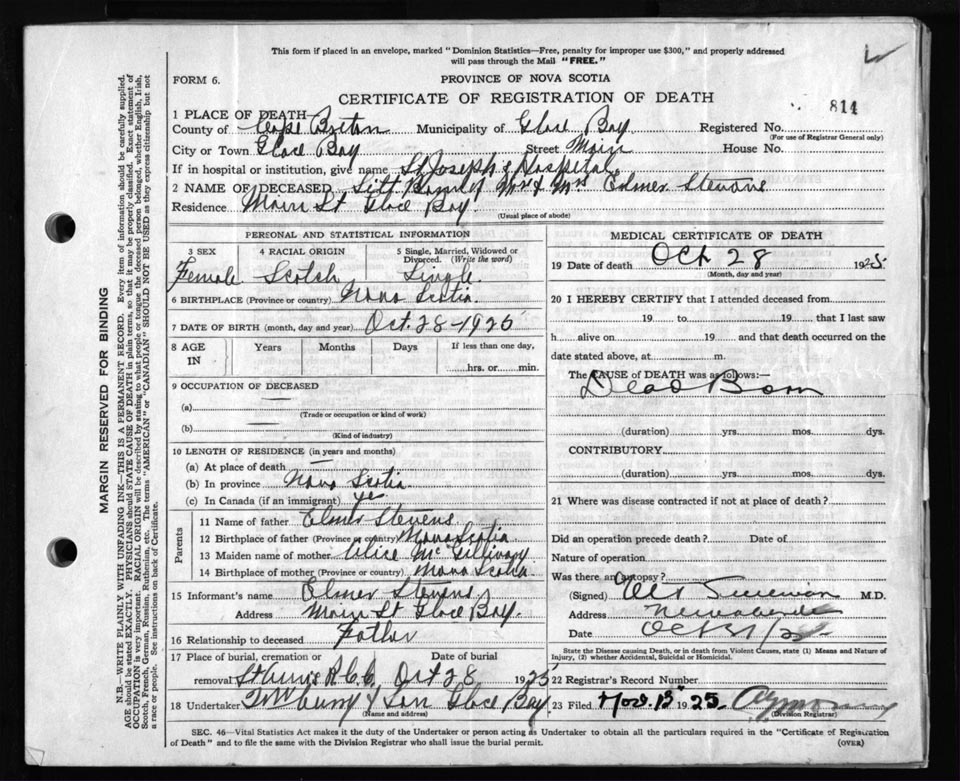 This form if placed in an envelope, marked "Dominion Statistics—Free, penalty for improper use $300," and properly addressed
will pass through the Mail "FREE."
FORM 6.
PROVINCE OF NOVA SCOTIA
CERTIFICATE OF REGISTRATION OF DEATH
814
1 PLACE OF DEATH
County of Cape Breton Municipality of Glace Bay Registered No.
(For use of Registrar General only)
City or Town Glace Bay Street Main House No.
If in hospital or institution, give name St Joseph's Hospital
2 NAME OF DECEASED Still Born of Mr & Mrs Elmer Stevens
Residence Main St Glace Bay.
(Usual place of abode)
PERSONAL AND STATISTICAL INFORMATION
3 SEX 4 RACIAL ORIGIN 5 Single, Married, Widowed or Divorced. (Write the word)
Female Scotch Single
6 BIRTHPLACE (Province or country) Nova Scotia
7 DATE OF BIRTH (month, day and year) Oct. 28-1925
8 AGE IN Years Months Days If less than one day,
hrs. or min.
9 OCCUPATION OF DECEASED
(a)
(Trade or occupation or kind of work)
(b)
(Kind of industry)
10 LENGTH OF RESIDENCE (in years and months)
(a) At place of death —
(b) In province Nova Scotia
(c) In Canada (if an immigrant) yes
Parents
11 Name of father Elmer Stevens
12 Birthplace of father (Province or country) Nova Scotia
13 Maiden name of mother Alice McGillivary
14 Birthplace of mother (Province or country) Nova Scotia
15 Informant's name Elmer Stevens
Address Main St Glace Bay.
16 Relationship to deceased Father
17 Place of burial, cremation or removal Date of burial
St Ann's R.C.C. Oct 28 1925
18 Undertaker & Son Glace Bay
(Name and address)
MEDICAL CERTIFICATE OF DEATH
19 Date of death Oct 28 1925
(Month, day and year)
20 I HEREBY CERTIFY that I attended deceased from
19 to 19 that I last saw
h alive on 19 and that death occurred on the
date stated above, at m.
The CAUSE of DEATH was as follows:—
Dead Born
(duration) yrs. mos. dys.
CONTRIBUTORY
(duration) yrs. mos. dys.
21 Where was disease contracted if not at place of death?
Did an operation precede death? Date of
Nature of operation
Was there an autopsy?
(Signed) M.D.
Address
Date Oct 31/25
State the Disease causing Death, or in death from Violent Causes, state (1) Means and Nature of
Injury, (2) whether Accidental, Suicidal or Homicidal.
22 Registrar's Record Number
23 Filed Nov. 13 1925
(Division Registrar)
SEC. 46—Vital Statistics Act makes it the duty of the Undertaker or person acting as Undertaker to obtain all the particulars required in the "Certificate of Registration
of Death" and to file the same with the Division Registrar who shall issue the burial permit.
(OVER)
MARGIN RESERVED FOR BINDING
N.B.—WRITE PLAINLY WITH UNFADING INK—THIS IS A PERMANENT RECORD. Every item of information should be carefully supplied.
AGE should be stated EXACTLY. PHYSICIANS should STATE CAUSE OF DEATH in plain terms, so that it may be properly classified. Exact statement of
OCCUPATION is very important. RACIAL ORIGIN will be described by stating to what people or tongue the deceased person belonged, whether English, Irish,
Scotch, French, German, Russian, Ruthenian, etc. The terms "AMERICAN" or "CANADIAN" SHOULD NOT BE USED as they express citizenship but not
a race or people. See instructions on back of Certificate.